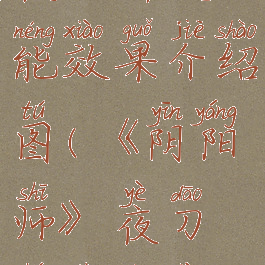 néng xiào guǒ jiè shào
能效果介绍
tú yīn yáng
图(《阴阳
shī yè dāo
师》夜刀